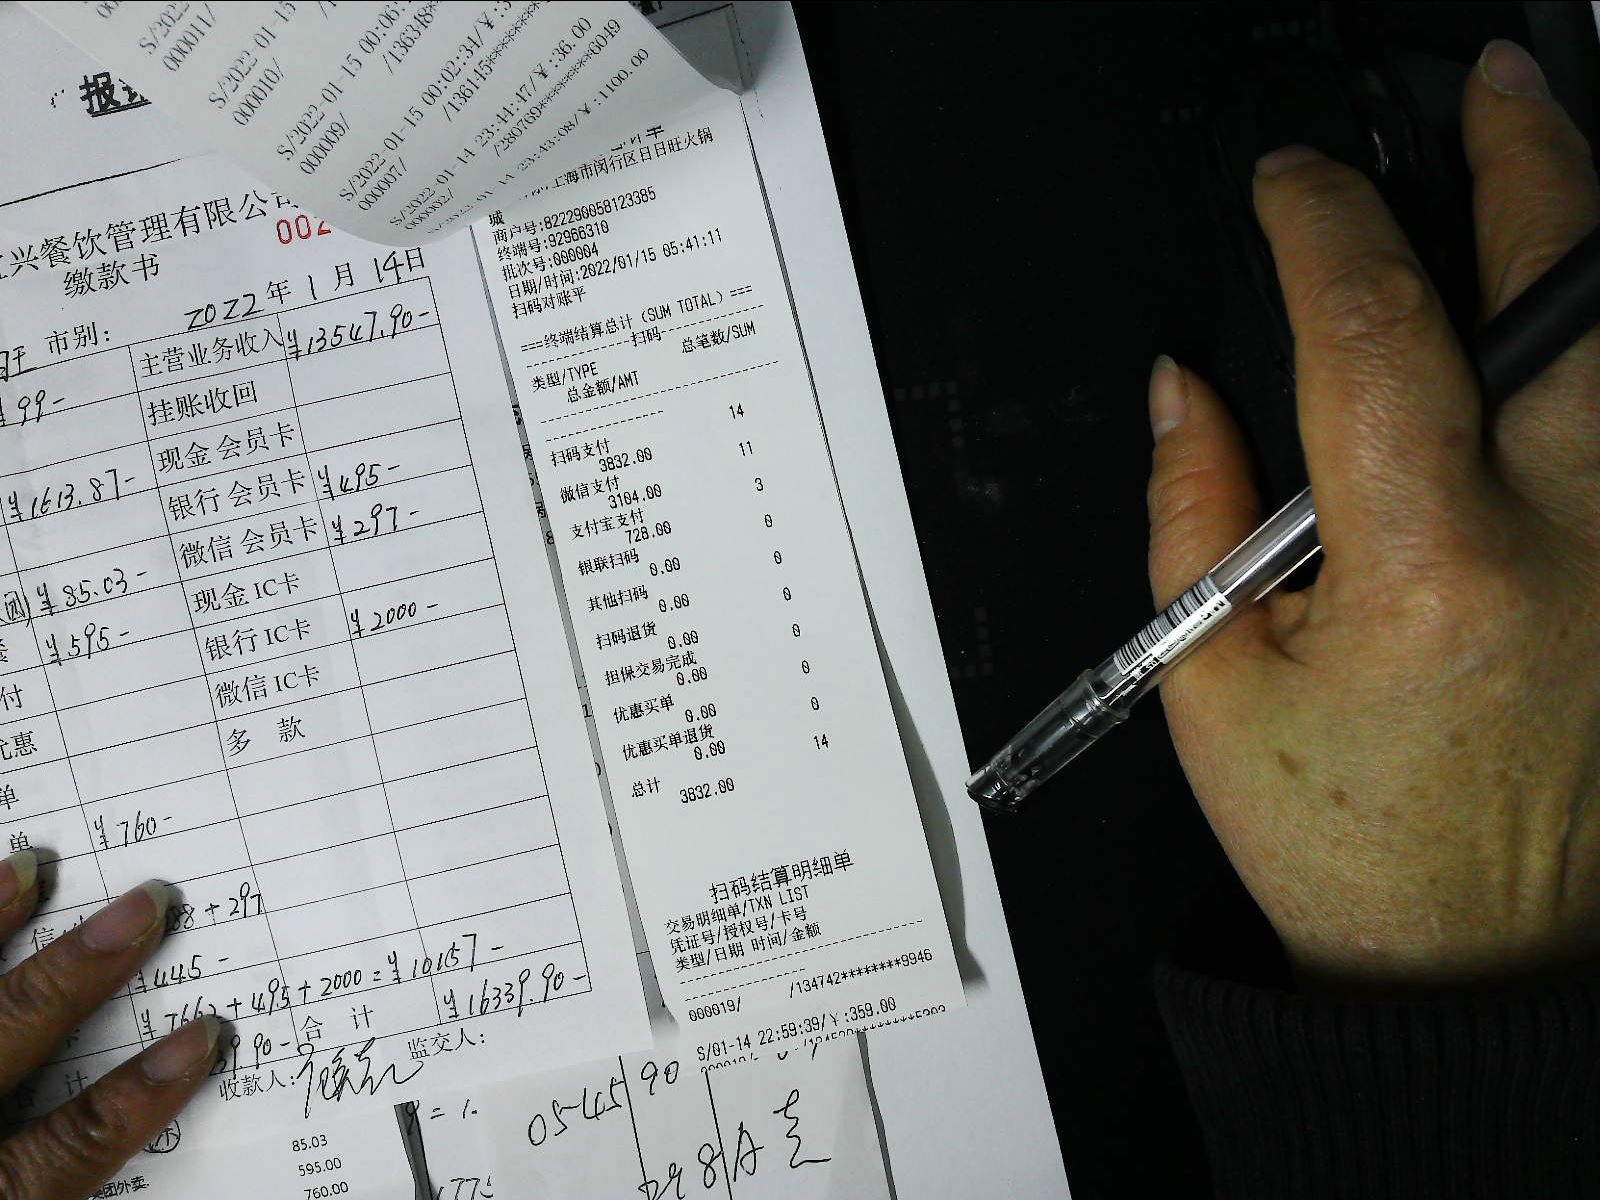 S/2022-01-15 00:06:
000010/
/136348*
S/2022-01-15 00:02:34/¥:3
000009/
/136145*
S/2022-01-14 23:44:47/¥:36.00
000007/
/280769************6049
S/2022-01-14 23:43:08/¥:1100.00
000002/
000011/
报
兴餐饮管理有限公司
002
缴款书
2022年1月14日
市别:
主营业务收入 ¥13547.90-
¥99-
挂账收回
现金会员卡
¥1613.87-
银行会员卡 ¥495-
微信会员卡 ¥297-
¥85.03-
现金IC卡
¥595-
银行IC卡 ¥2000-
付
微信IC卡
惠
多 款
单
单 ¥760-
88+297
信
¥445-
¥7662+495+2000=¥10157-
合 计
39.90-
合 计 ¥16339.90-
收款人:
监交人:
85.03
595.00
美团外卖
760.00
上海市闵行区日日旺火锅
城
商户号:822290058123385
终端号:92966310
批次号:000004
日期/时间:2022/01/15 05:41:11
扫码对账平
===终端结算总计(SUM TOTAL)===
扫码
类型/TYPE 总笔数/SUM
总金额/AMT
扫码支付 14
3832.00
微信支付 11
3104.00
支付宝支付 3
728.00
银联扫码 0
0.00
其他扫码 0
0.00
扫码退货 0
0.00
担保交易完成 0
0.00
优惠买单 0
0.00
优惠买单退货 0
0.00
总计 14
3832.00
扫码结算明细单
交易明细单/TXN LIST
凭证号/授权号/卡号
类型/日期 时间/金额
000019/ /134742********9946
S/01-14 22:59:39/¥:359.00
0545 90